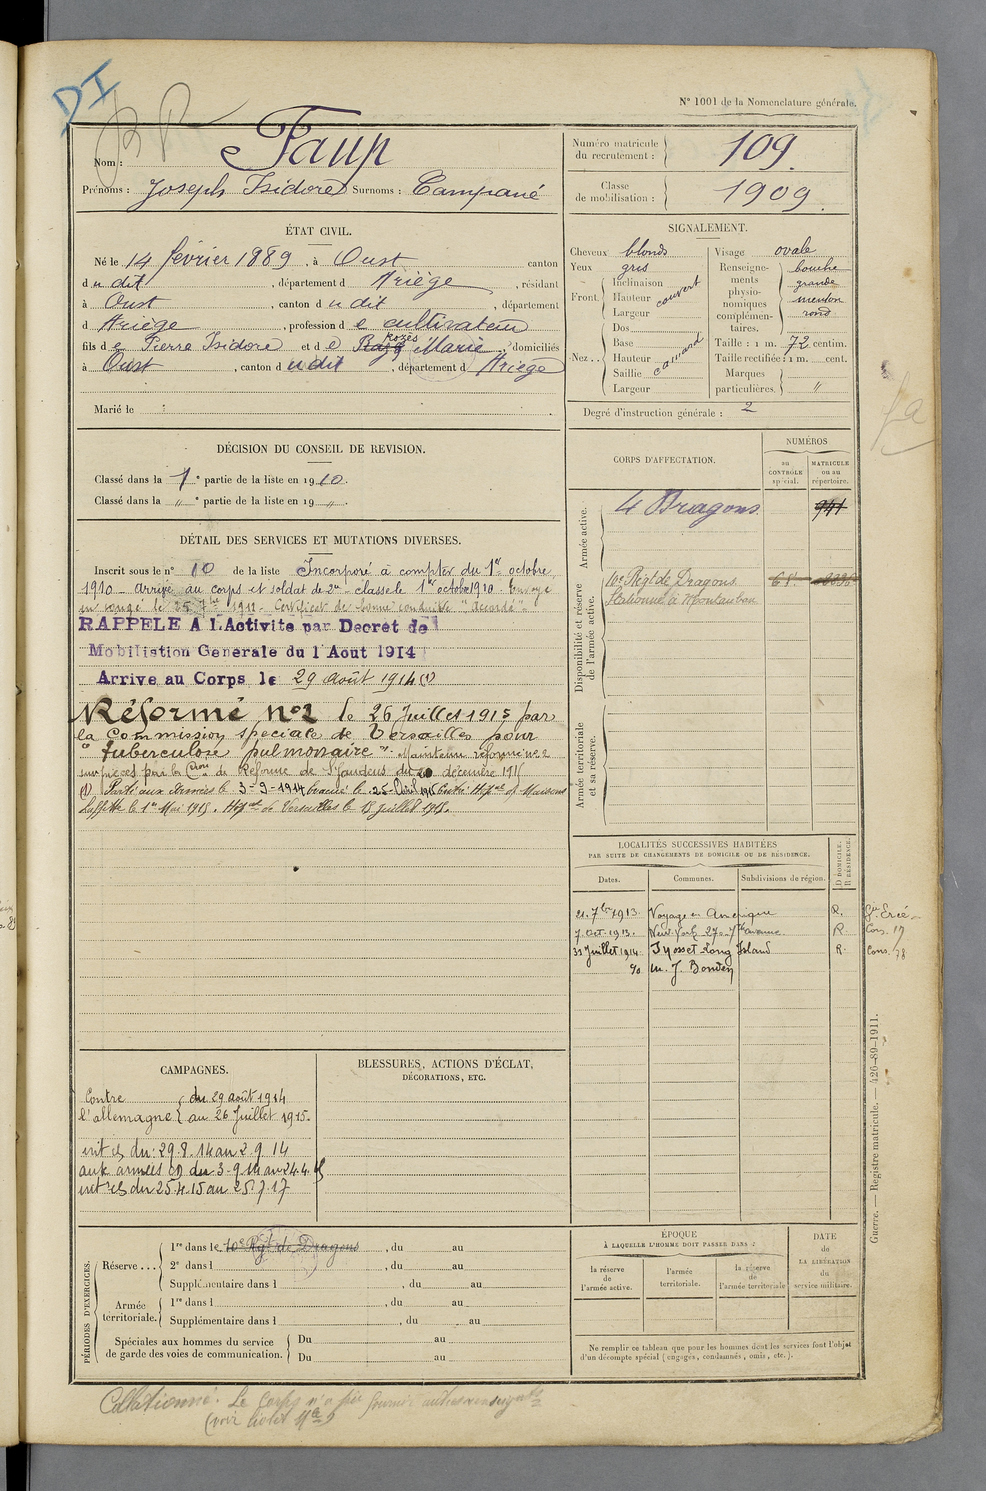 DI
R P
N° 1001 de la Nomenclature générale.
Nom : Faup
Prénoms : Joseph Isidore Surnoms : Campané
Numéro matricule du recrutement : 109.
Classe de mobilisation : 1909.
ÉTAT CIVIL.
Né le 14 février 1889, à Oust canton
du dit, département d Ariège, résidant
à Oust, canton du dit, département
d Ariège, profession de cultivateur
fils de Pierre Isidore et de Rozès Marie, domiciliés
à Oust, canton du dit, département d Ariège
Marié le
SIGNALEMENT.
Cheveux blonds
Yeux gris
Front. Inclinaison Hauteur Largeur couvert
Nez.. Dos Base Hauteur Saillie Largeur camard
Visage ovale
Renseignements physionomiques complémentaires. bouche grande menton rond
Taille : 1 m. 72 centim.
Taille rectifiée : 1 m. cent.
Marques particulières. "
Degré d'instruction générale : 2
DÉCISION DU CONSEIL DE REVISION.
Classé dans la 1e partie de la liste en 1910.
Classé dans la " e partie de la liste en 19 ".
DÉTAIL DES SERVICES ET MUTATIONS DIVERSES.
Inscrit sous le n° 10 de la liste Incorporé à compter du 1er octobre
1910. arrivé au corps et soldat de 2e classe le 1er octobre 1910. Envoyé
en congé le 25 7bre 1912. Certificat de bonne conduite "Accordé".
RAPPELE A l'Activite par Decret de
Mobilistion Generale du 1 Aout 1914
Arrive au Corps le 29 août 1914 (1)
Réformé n°2 le 26 Juillet 1915 par
la Commission spéciale de Versailles pour
"tuberculose pulmonaire". Maintenu réformé n°2
sur pièces par la Cion de Réforme de St Gaudens du 20 décembre 191
(1) Parti aux Armées le 3-9-1914 évacué le 25 Avril 1915 Hôpal de Maisons
Laffitte le 1er Mai 1915. Hôpal de Versailles le 18 juillet 1915.
CORPS D'AFFECTATION.
NUMÉROS
au CONTRÔLE spécial.
MATRICULE ou au répertoire.
Armée active.
4 Dragons 941
Disponibilité et réserve de l'armée active.
10e Régt de Dragons
Stationné à Montauban
Armée territoriale et sa réserve.
LOCALITÉS SUCCESSIVES HABITÉES
PAR SUITE DE CHANGEMENTS DE DOMICILE OU DE RÉSIDENCE.
Dates. Communes. Subdivisions de région. D. DOMICILE. R. RÉSIDENCE.
21. 7bre 1913. Voyage en Amérique R.
7. Oct. 1913. New-York 270. 7e avenue R. Cons. 17
31 Juillet 1914 Syosset Long Island R. Cons. 78
c/o M. J. Bowden
CAMPAGNES.
Contre l'allemagne { du 29 août 1914
au 26 Juillet 1915.
int es du: 29.8.14 au 2.9.14
aux armées du 3-9-14 au 24.4.15
int es du 25.4.15 au 25.7.17
BLESSURES, ACTIONS D'ÉCLAT,
DÉCORATIONS, ETC.
PÉRIODES D'EXERCICES.
Réserve... 1re dans le 10e Rgt de Dragons, du au
2e dans l , du au
Supplémentaire dans l , du au
Armée territoriale. 1re dans l , du au
Supplémentaire dans l , du au
Spéciales aux hommes du service de garde des voies de communication. Du au
Du au
ÉPOQUE
À LAQUELLE L'HOMME DOIT PASSER DANS :
la réserve de l'armée active.
l'armée territoriale.
la réserve de l'armée territoriale
DATE de LA LIBÉRATION du service militaire.
Ne remplir ce tableau que pour les hommes dont les services font l'objet
d'un décompte spécial (engagés, condamnés, omis, etc.).
Guerre. — Registre matricule. — 426-89-1911.
Collationné. Le Corps n'a pu fournir autres renseignts